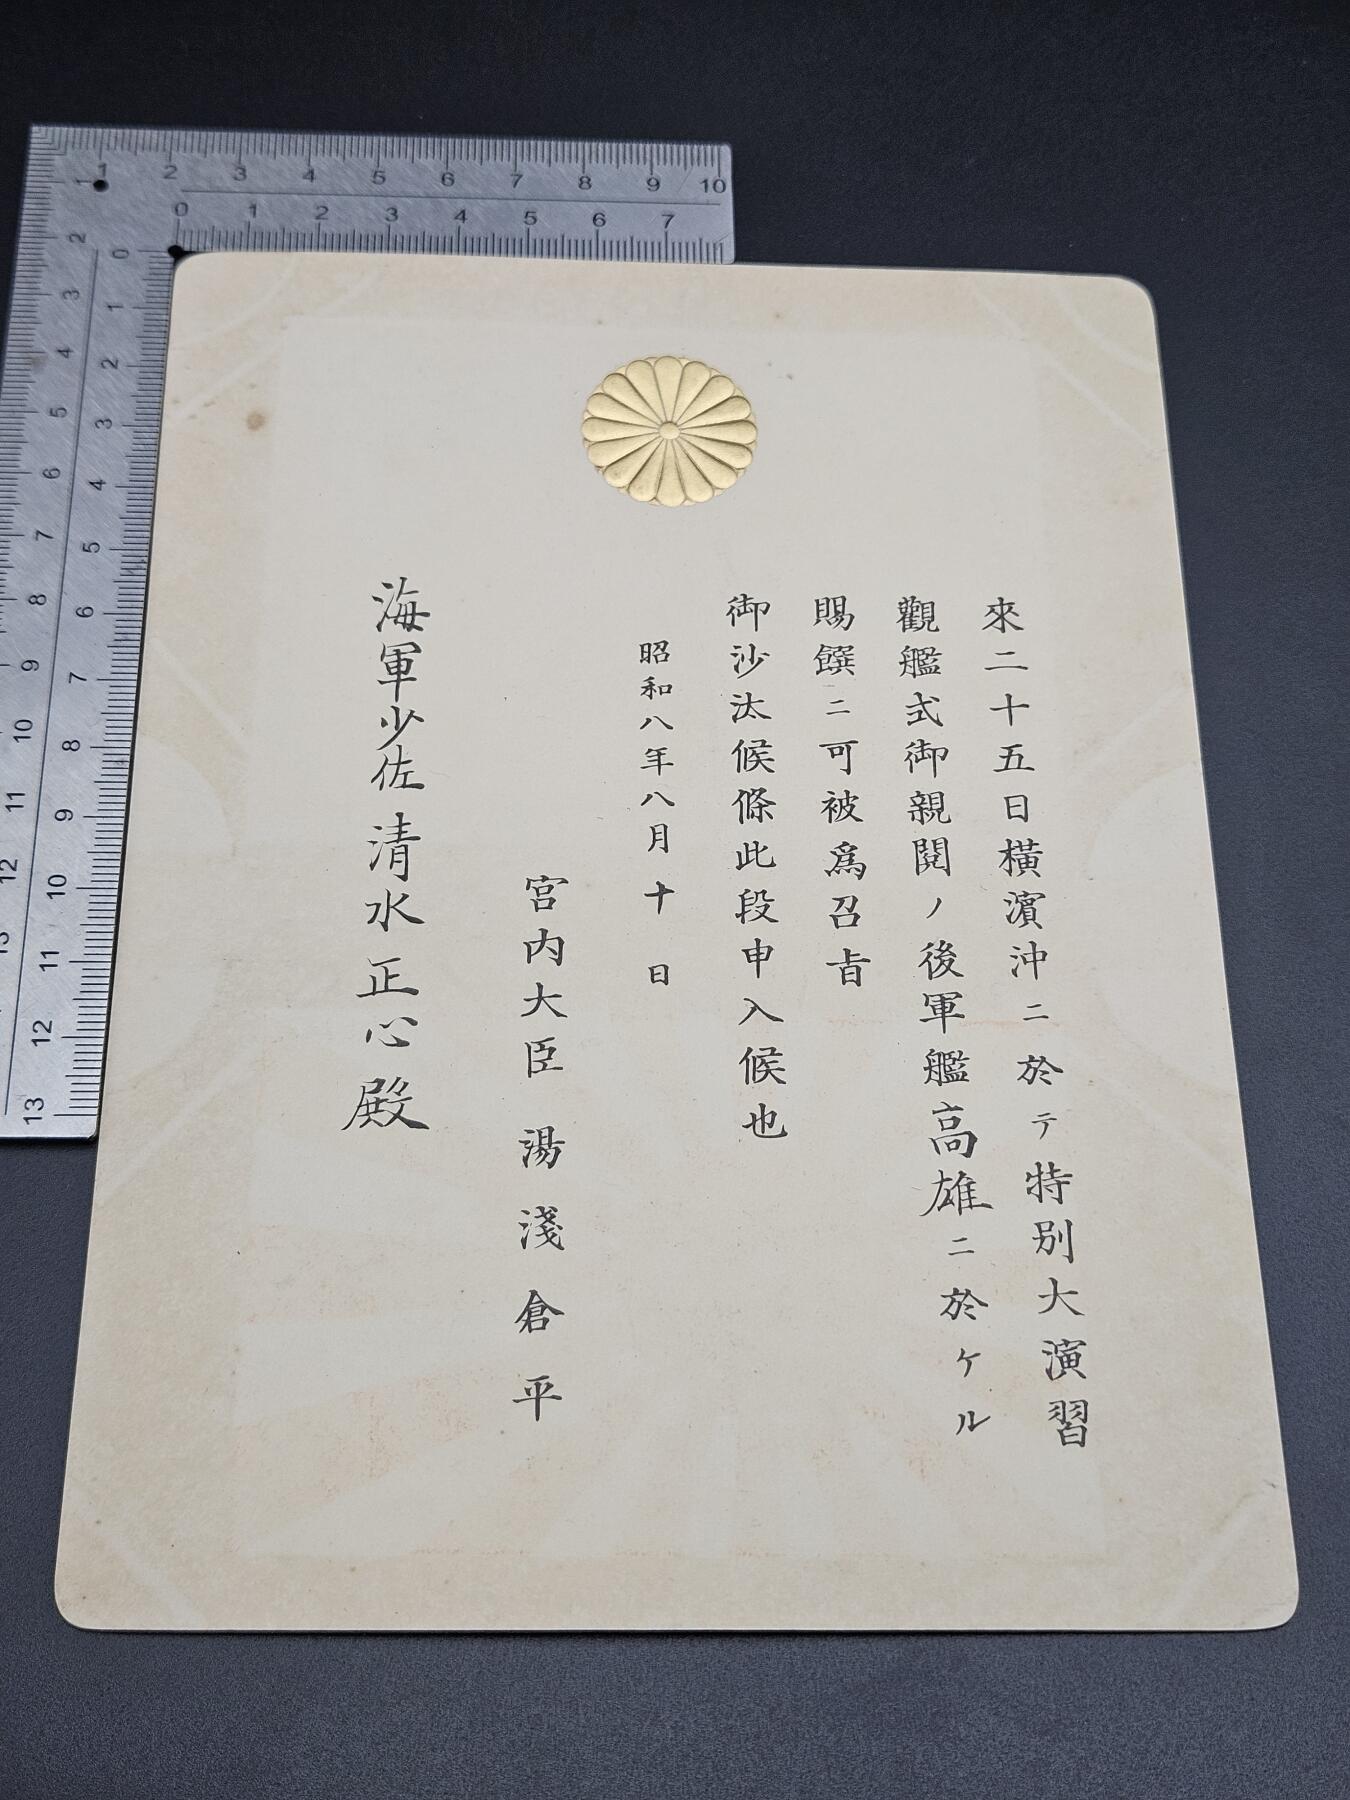 來二十五日橫濱沖ニ於テ特別大演習
觀艦式御親閱ノ後軍艦高雄ニ於ケル
賜饌ニ可被爲召旨
御沙汰候條此段申入候也
昭和八年八月十日
宮内大臣 湯淺倉平
海軍少佐 清水正心殿
1 2 3 4 5 6 7 8 9 10
0 1 2 3 4 5 6 7
1 2 3 4 5 6 7 8 9 10 11 12 13
0 1 2 3 4 5 6 7 8 9 10 11 12 13